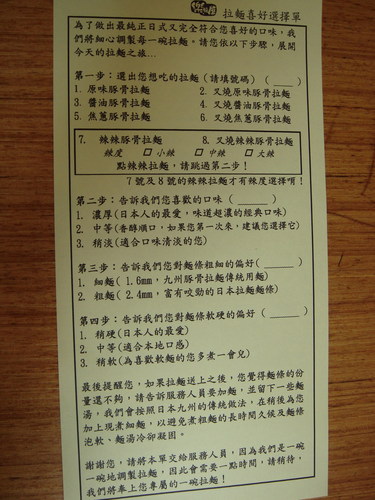 拉麵喜好選擇單
為了做出最純正日式又完全符合您喜好的口味，我
們將細心調製每一碗拉麵。請您依以下步驟，展開
今天的拉麵之旅…
第一步：選出您想吃的拉麵（請填號碼）（____）
1. 原味豚骨拉麵 2. 叉燒原味豚骨拉麵
3. 醬油豚骨拉麵 4. 叉燒醬油豚骨拉麵
5. 焦蔥豚骨拉麵 6. 叉燒焦蔥豚骨拉麵
7. 辣辣豚骨拉麵 8. 叉燒辣辣豚骨拉麵
辣度 □小辣 □中辣 □大辣
點辣辣拉麵，請跳過第二步！
7號及8號的辣辣拉麵才有辣度選擇唷！
第二步：告訴我們您喜歡的口味（______）
1. 濃厚(日本人的最愛，味道超濃的經典口味)
2. 中等(香醇順口，如果您第一次來，建議您選擇它)
3. 稍淡(適合口味清淡的您)
第三步：告訴我們您對麵條粗細的偏好(______)
1. 細麵( 1.6mm，九州豚骨拉麵傳統用麵)
2. 粗麵( 2.4mm，富有咬勁的日本拉麵麵條)
第四步：告訴我們您對麵條軟硬的偏好(______)
1. 稍硬(日本人的最愛)
2. 中等(適合本地口感)
3. 稍軟(為喜歡軟麵的您多煮一會兒)
最後提醒您，如果拉麵送上之後，您覺得麵條的份
量還不夠，請告訴服務人員要加麵，並留下一些麵
湯，我們會按照日本九州的傳統做法，在稍後為您
加上現煮細麵，以避免煮粗麵的長時間久候及麵條
泡軟、麵湯冷卻凝固。
謝謝您，請將本單交給服務人員，因為我們是一碗
一碗地調製拉麵，因此會需要一點時間，請稍待，
我們將奉上您專屬的一碗拉麵！